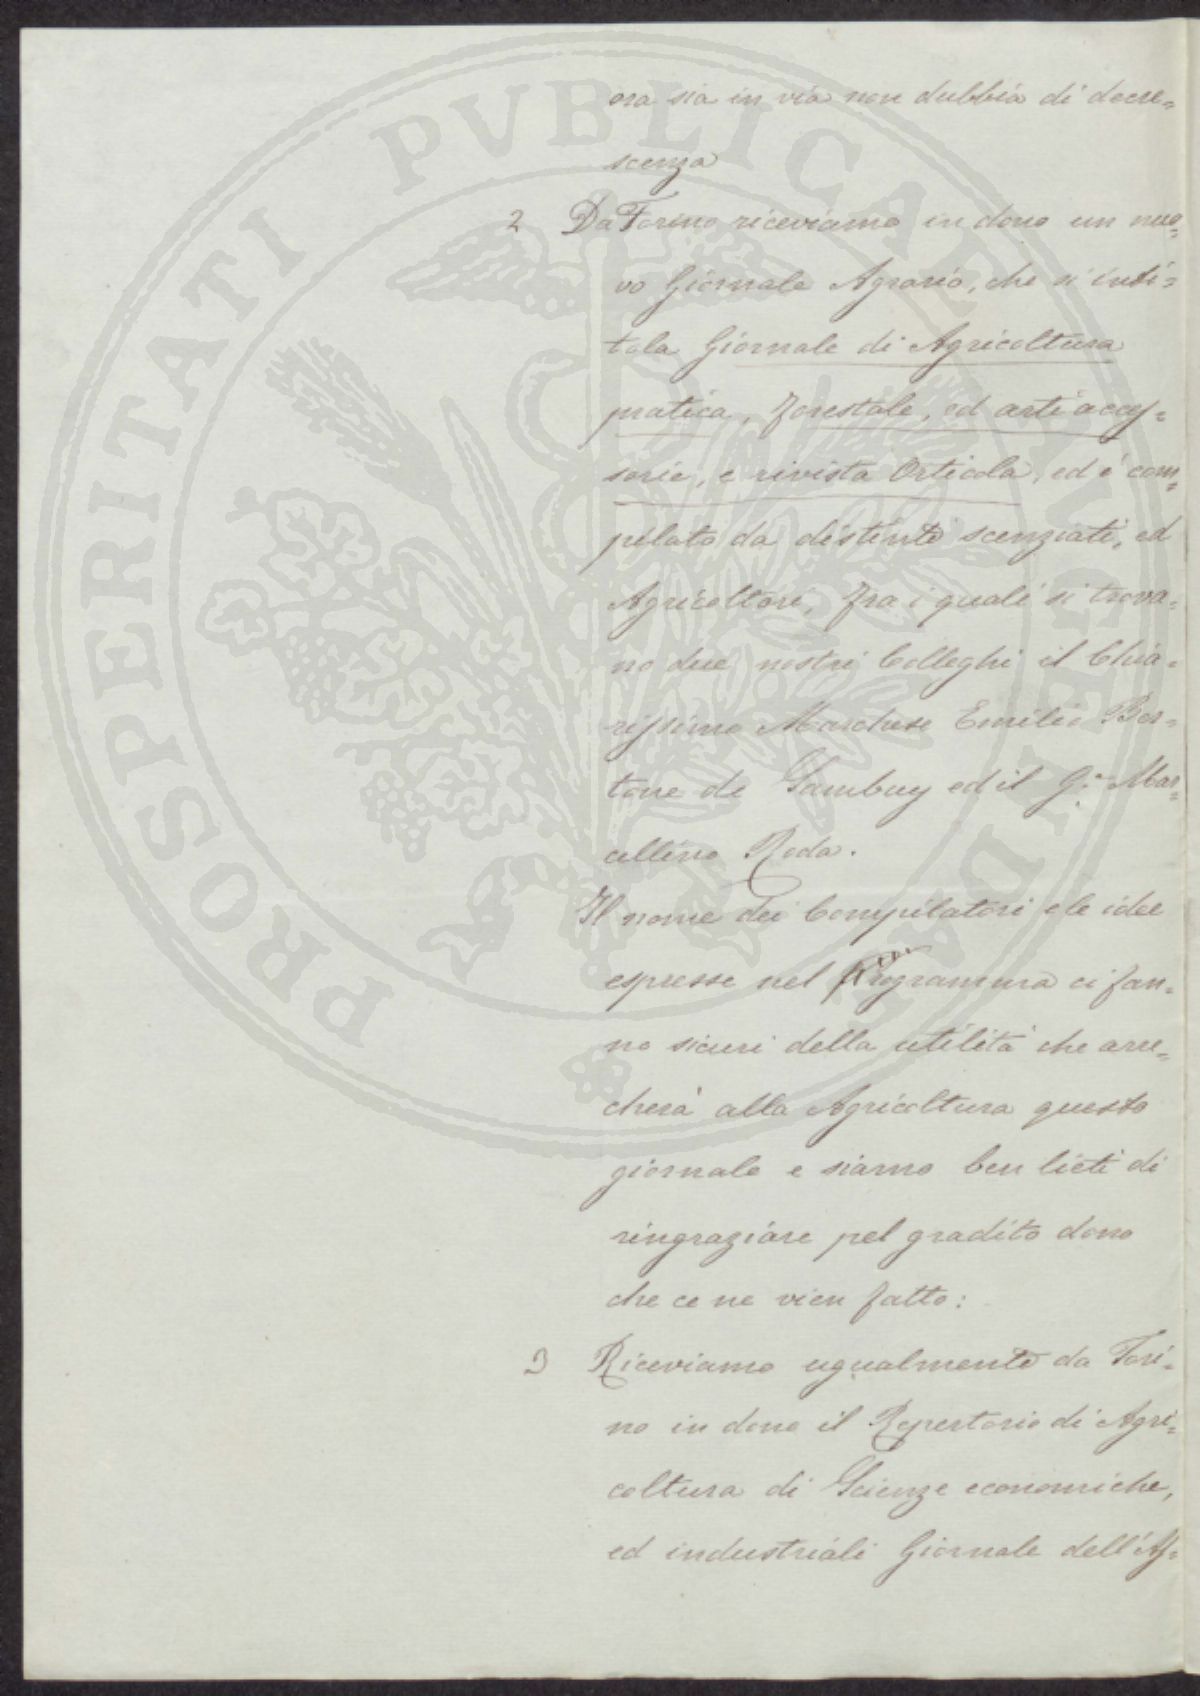 PROSPERITATI PVBLICAE AVGENDAE
ora sia in via non dubbia di decre=
scenza
2 Da Torino riceviamo in dono un nuo=
vo Giornale Agrario, che si inti=
tola Giornale di Agricoltura
pratica, Forestale, ed arti acces=
sorie, e rivista Orticola, ed è com=
pilato da distinti scenziati, ed
Agricoltori, fra i quali si trova=
no due nostri Colleghi il Chia=
rissimo Marchese Emilio Ber=
tone de Sambuy ed il G.e Mar=
cellino Roda.
Il nome dei Compilatori e le idee
espresse nel Programma ci fan=
no sicuri della utilità che arre=
cherà alla Agricoltura questo
giornale e siamo ben lieti di
ringraziare pel gradito dono
che ce ne vien fatto:
3 Riceviamo ugualmente da Tori=
no in dono il Repertorio di Agri=
coltura di Scienze economiche,
ed industriali Giornale dell'As=